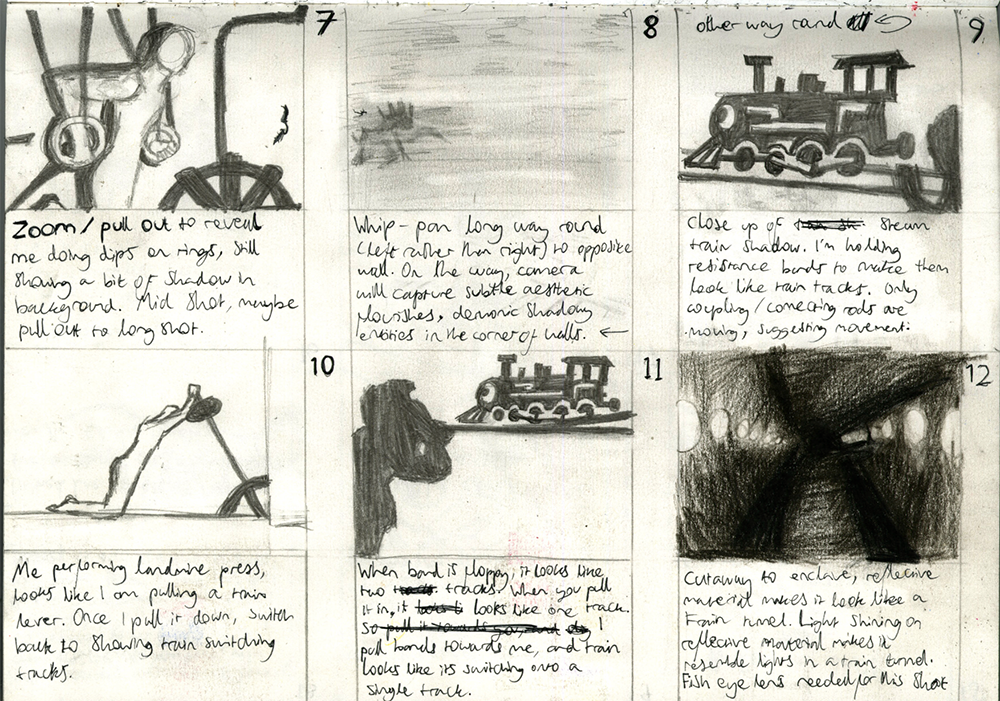 7
Zoom / pull out to reveal
me doing dips on rings, still
showing a bit of shadow in
background. Mid shot, maybe
pull out to long shot.
8
Whip-pan long way round
(left rather than right) to opposite
wall. On the way, camera
will capture subtle aesthetic
flourishes, demonic shadowy
entities in the corner of walls. ←
other way round
9
Close up of steam
train shadow. I'm holding
resistance bands to make them
look like train tracks. Only
coupling/connecting rods are
moving, suggesting movement.
10
Me performing landmine press,
looks like I am pulling a train
lever. Once I pull it down, switch
back to showing train switching
tracks.
11
When band is floppy, it looks like
two tracks. When you pull
it in, it looks like one track.
So I
pull bands towards me, and train
looks like its switching onto a
single track.
12
Cutaway to enclave, reflective
material makes it look like a
train tunnel. Light shining on
reflective material makes it
resemble lights in a train tunnel.
Fish eye lens needed for this shot